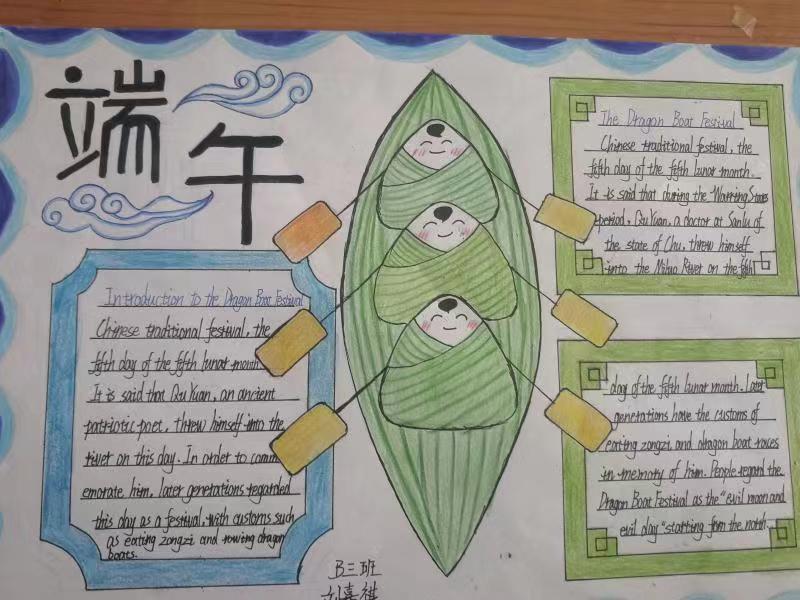 端午
Introduction to the Dragon Boat Festival
Chinese traditional festival, the
fifth day of the fifth lunar month.
It is said that Qu Yuan, an ancient
patriotic poet, threw himself into the
river on this day. In order to comm
emorate him, later generations regarded
this day as a festival, with customs such
as eating zongzi and rowing dragon
boats.
The Dragon Boat Festival
Chinese traditional festival, the
fifth day of the fifth lunar month.
It is said that during the Warring States
period, Qu Yuan, a doctor at Sanlu of
the state of Chu, threw himself
into the Miluo River on the fifth
day of the fifth lunar month. Later
generations have the customs of
eating zongzi and dragon boat races
in memory of him. People regard the
Dragon Boat Festival as the "evil moon and
evil day" starting from the north.
B三班
刘嘉祺